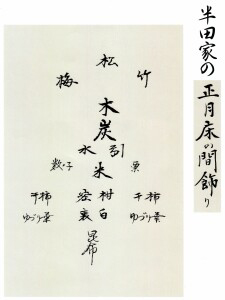 半田家の
正月床の間飾り
松
梅 竹
木炭
水引
数の子 米 栗
干柿 蜜柑 干柿
ゆづり葉 裏白 ゆづり葉
昆布